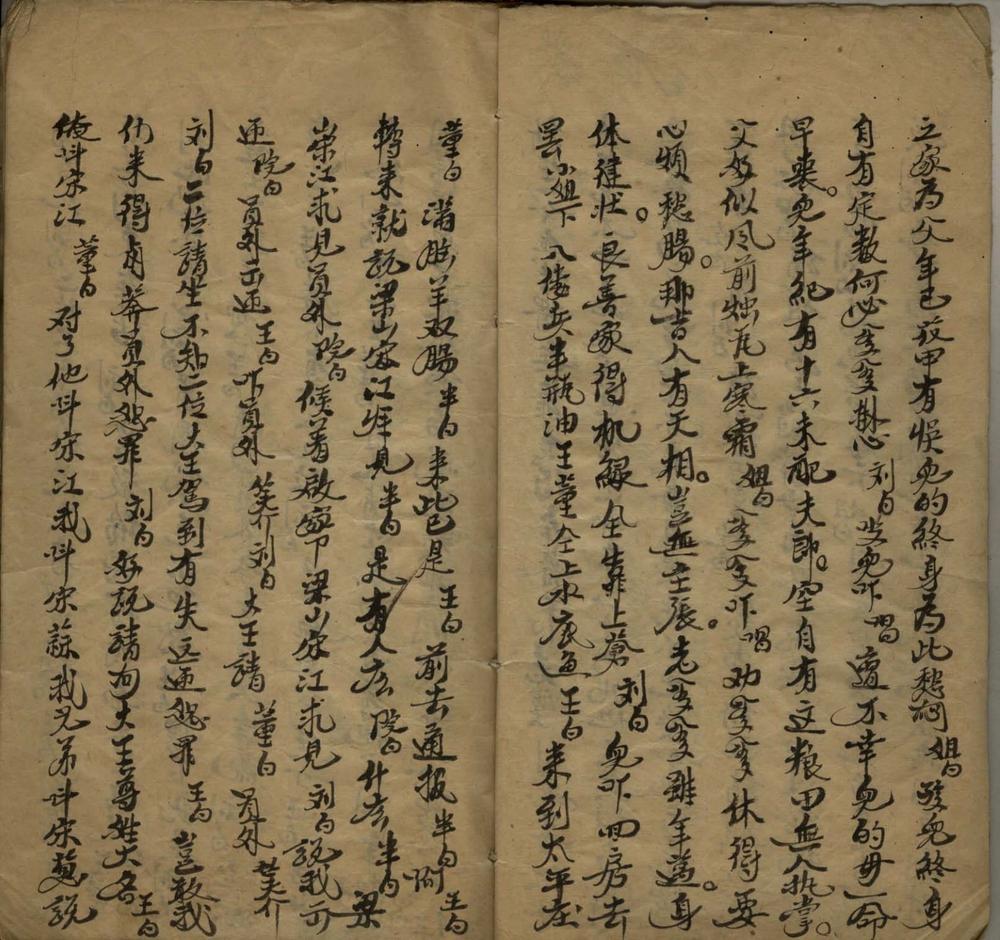 立家為父年已花甲有悞兒的終身為此愁悶 姐白 孩兒終身
自有定数何必爹爹掛心 刘白 女兒吓 唱 遭不幸兒的母一命
早喪。兒年紀有十六未配夫郎。空自有这粮田無人执掌。
父好似风前烛瓦上寒霜 姐白 爹爹吓 唱 劝爹爹休得要
心煩愁腸。那吉人有天相。豈無主張。老爹爹雖年邁。身
体健壮。良善家得机緣全靠上蒼 刘白 兒吓回房去
罢 小姐下 八偻兵半瓶油王董仝上水底魚 王白 来到太平庄
董白 满脸羊双腸 半白 来此已是 王白 前去通报 半白 啊 王白
轉来就說梁山宋江徃見 半白 是 有人庅 院白 什庅 半白 梁
山宋江求見員外 院白 候着啟禀员外梁山宋江求見 刘白 說我可
迎 院白 員外出迎 王白 吓員外 笑介 刘白 大王請 董白 員外 笑介
刘白 二位請坐不知二位大王駕到有失远迎恕罪 王白 豈敢我
们来得鹵莽員外恕罪 刘白 好說請问大王尊姓大名 王白
俺叫宋江 董白 对了他叫宋江我叫宋蒜我兄弟叫宋葱 說